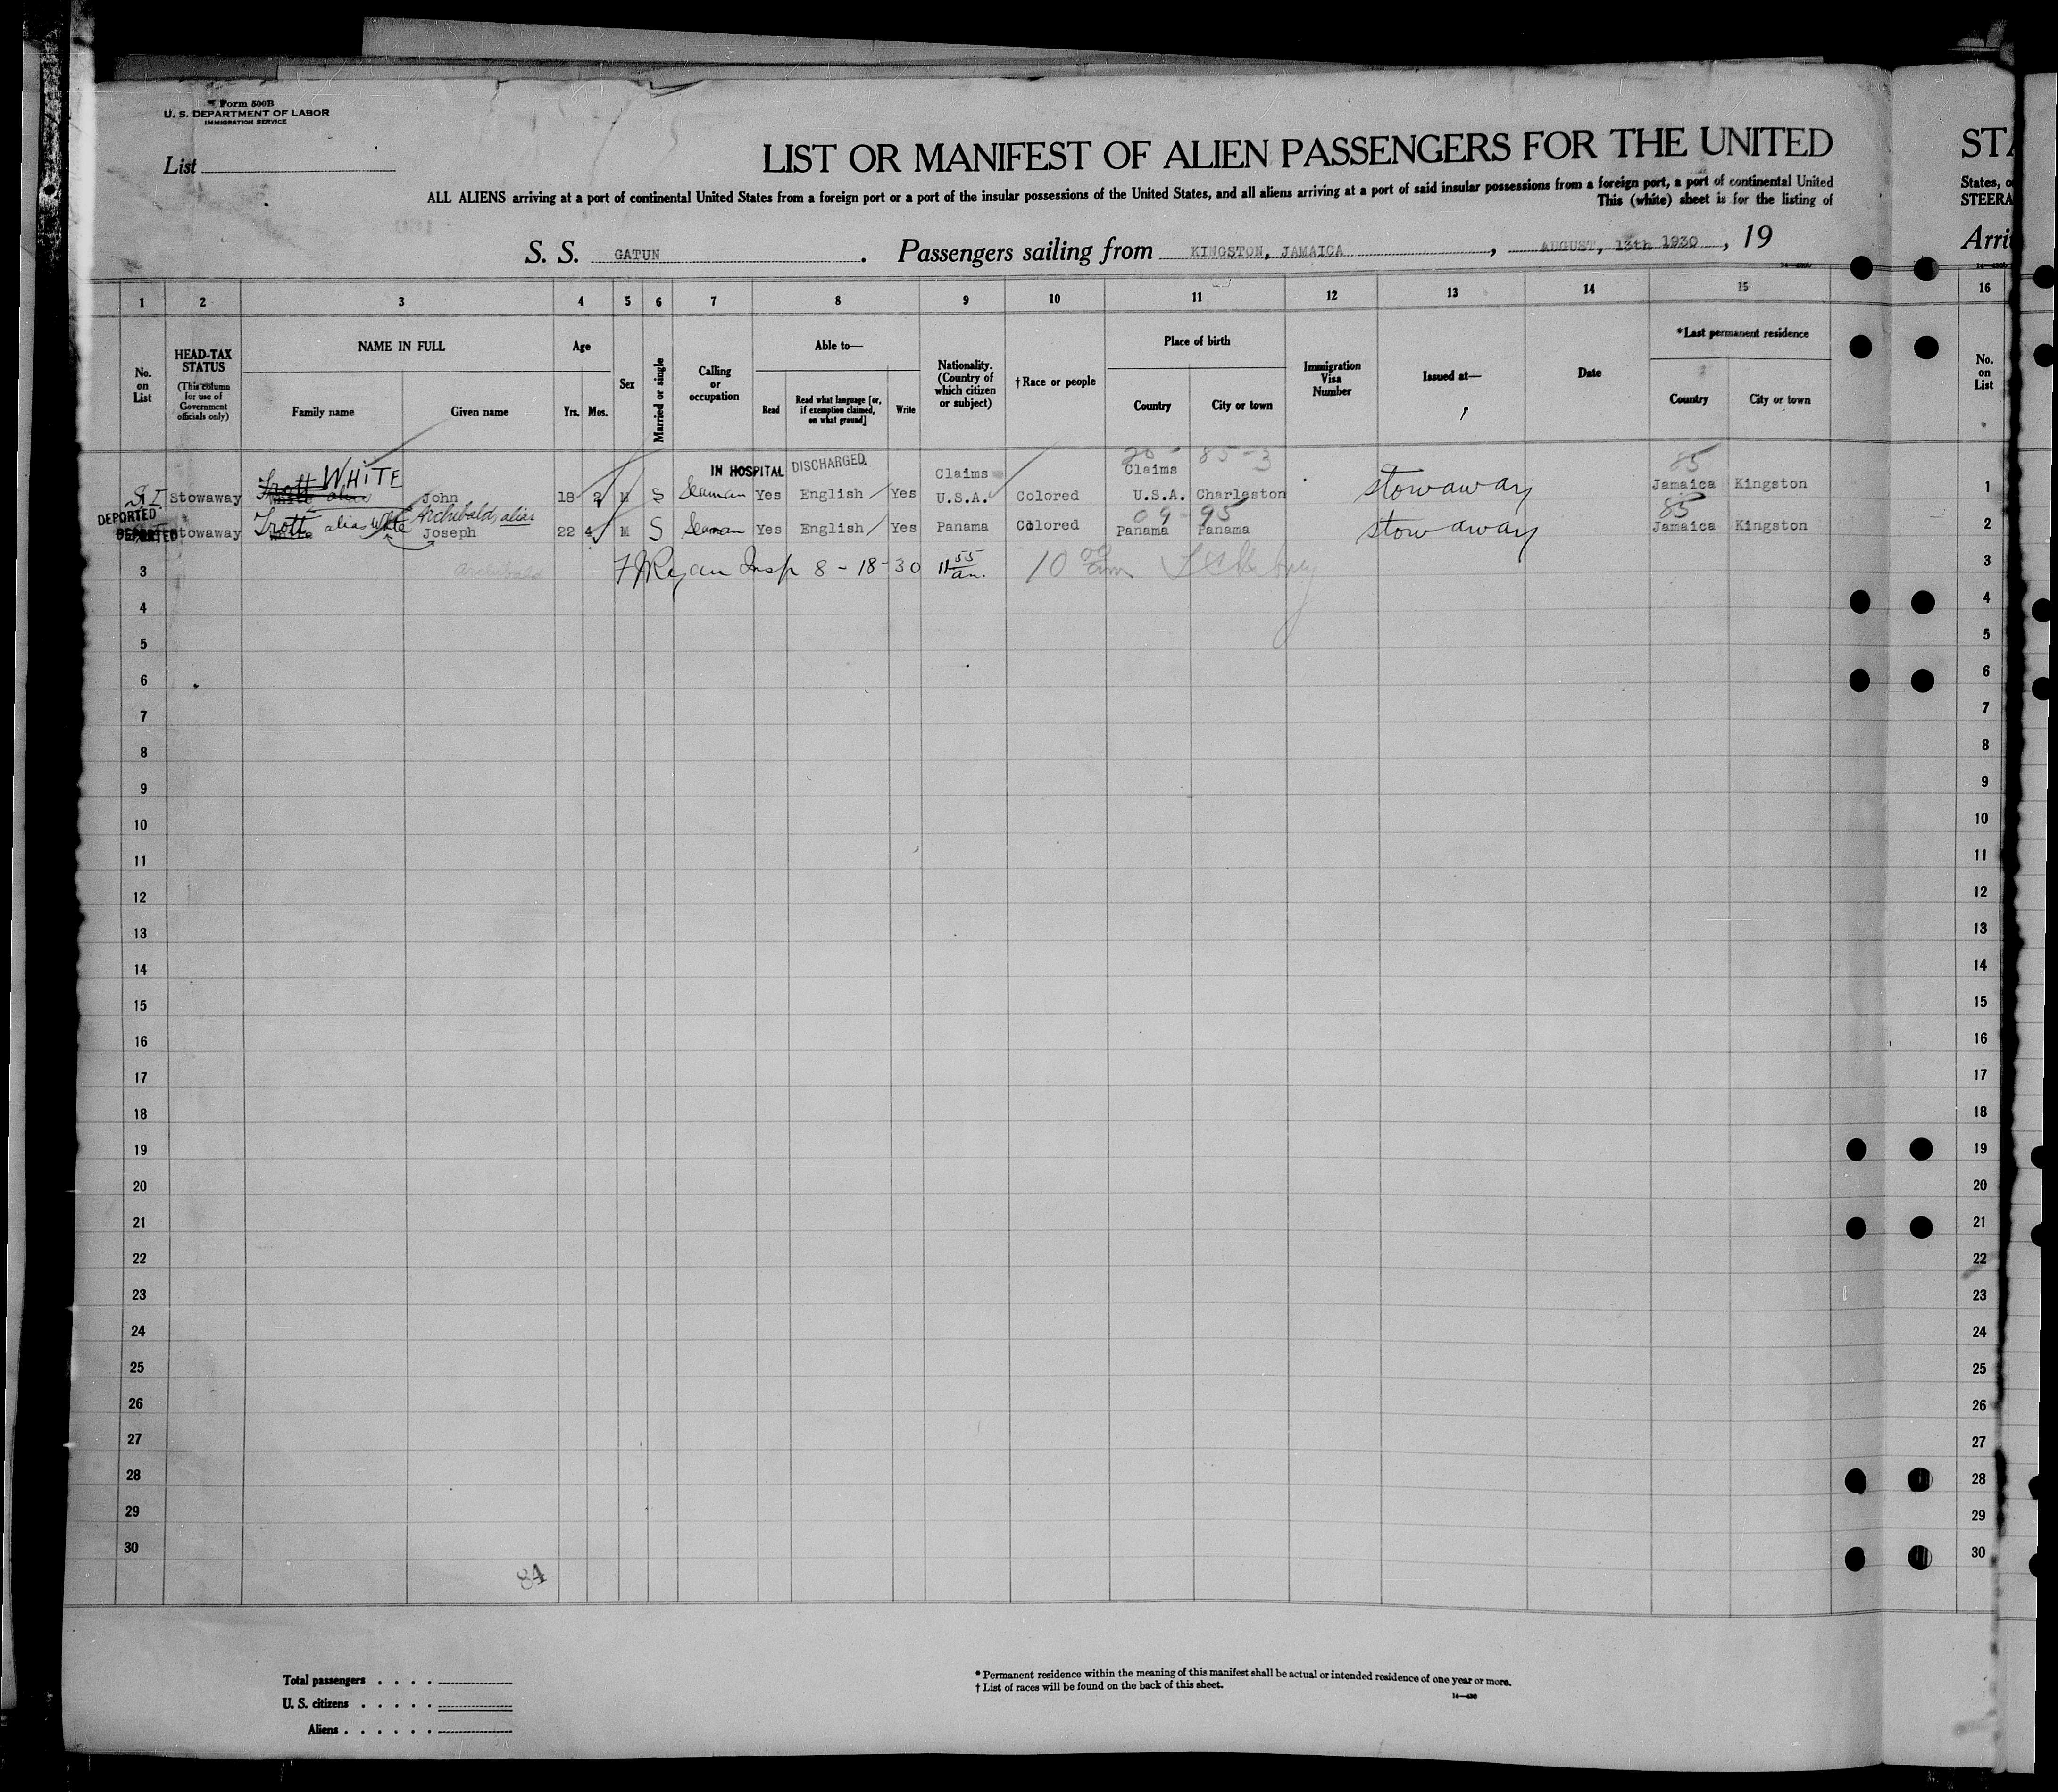 Form 500B
U. S. DEPARTMENT OF LABOR
IMMIGRATION SERVICE
List
LIST OR MANIFEST OF ALIEN PASSENGERS FOR THE UNITED
ALL ALIENS arriving at a port of continental United States from a foreign port or a port of the insular possessions of the United States, and all aliens arriving at a port of said insular possessions from a foreign port, a port of continental United
This (white) sheet is for the listing of
S. S. GATUN. Passengers sailing from KINGSTON, JAMAICA, AUGUST, 13th 1930, 19
STA
States, o
STEERA
Arri
1 2 3 4 5 6 7 8 9 10 11 12 13 14 15 16
No. on List
HEAD-TAX STATUS
(This column for use of Government officials only)
NAME IN FULL
Family name Given name
Age
Yrs. Mos.
Sex
Married or single
Calling or occupation
Able to—
Read
Read what language [or, if exemption claimed, on what ground]
Write
Nationality. (Country of which citizen or subject)
†Race or people
Place of birth
Country City or town
Immigration Visa Number
Issued at—
Date
*Last permanent residence
Country City or town
No. on List
IN HOSPITAL DISCHARGED Claims Claims 85-3 85
S.I. Stowaway Trott WHITE White alias John 18 2 M S Seaman Yes English Yes U.S.A. Colored U.S.A. Charleston stowaway Jamaica Kingston 1
DEPORTED Archibald, alias 09-95 85
DEPORTED Stowaway Trott alias White White Joseph 22 4 M S Seaman Yes English Yes Panama Colored Panama Panama stowaway Jamaica Kingston 2
3 Archibald F J Ryan Insp 8-18-30 11 55 am. 10 00 am 3
4 4
5 5
6 6
7 7
8 8
9 9
10 10
11 11
12 12
13 13
14 14
15 15
16 16
17 17
18 18
19 19
20 20
21 21
22 22
23 23
24 24
25 25
26 26
27 27
28 28
29 29
30 30
84
Total passengers
U. S. citizens
Aliens
* Permanent residence within the meaning of this manifest shall be actual or intended residence of one year or more.
† List of races will be found on the back of this sheet.